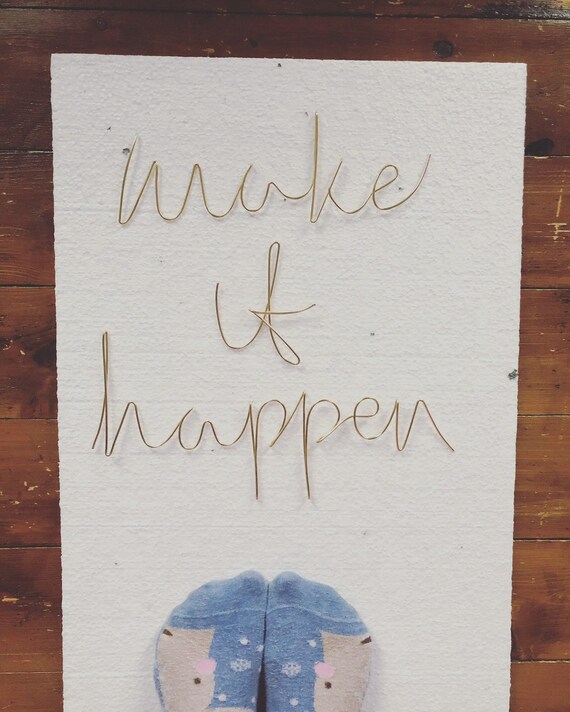 make
it
happen